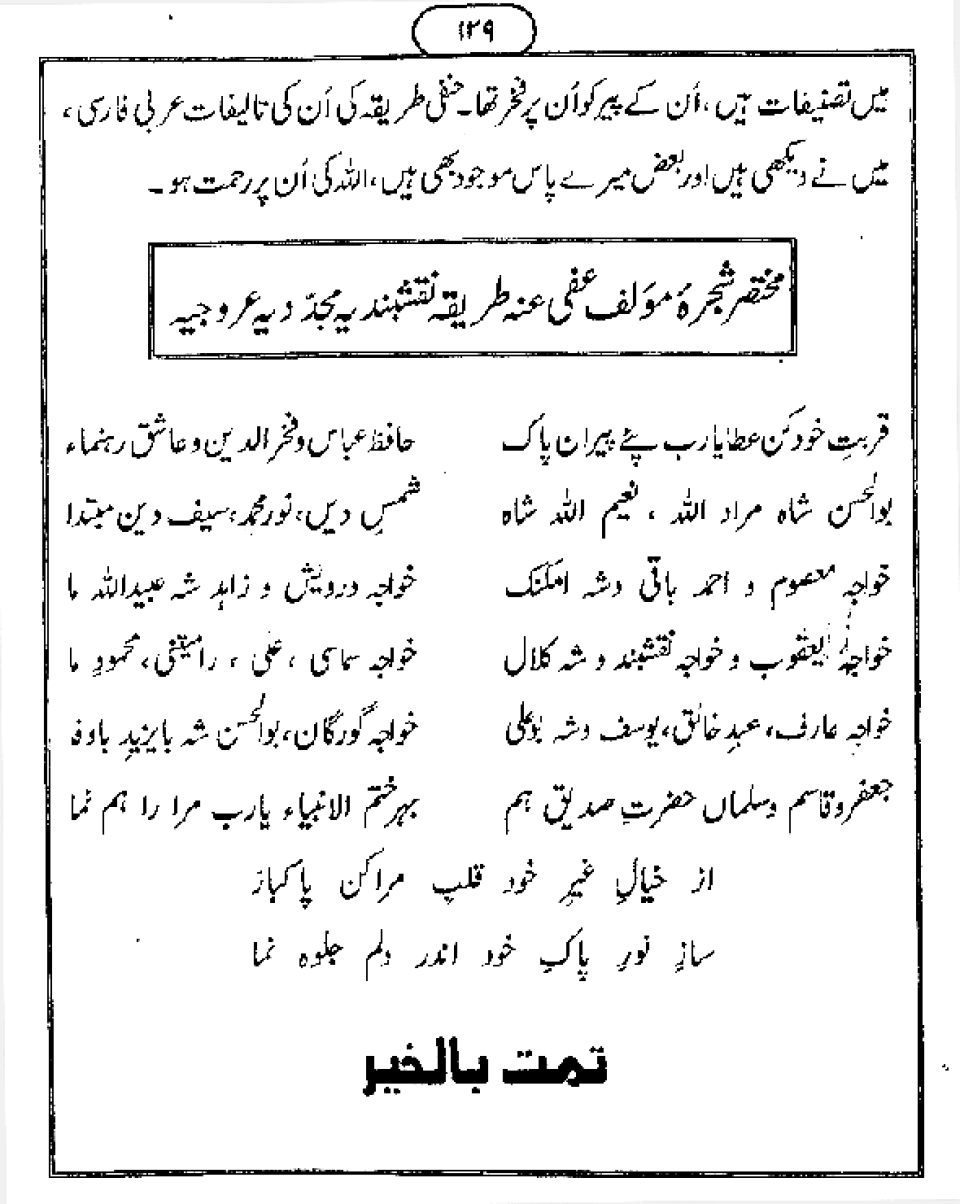 ۱۲۹
میں تصنیفات ہیں، اُن کے پیر کو اُن پر فخر تھا۔ حنفی طریقہ کی اُن کی تالیفات عربی فارسی،
میں نے دیکھی ہیں اور بعض میرے پاس موجود بھی ہیں، اللہ کی اُن پر رحمت ہو۔
مختصر شجرۂ مؤلف عفی عنہ طریقہ نقشبندیہ مجدّدیہ عروجیہ
قربتِ خود کن عطا یارب پئے پیران پاک حافظ عباس و فخر الدین و عاشق رہنماء
بوالحسن شاہ مراد اللہ ، نعیم اللہ شاہ شمسِ دیں، نور محمد، سیف دین مبتدا
خواجہ معصوم و احمد باقی و شہ امکنگ خواجہ درویش و زاہد شہ عبیداللہ ما
خواجہ یعقوب و خواجہ نقشبند و شہ کلال خواجہ سماسی ، علی ، رامیتنی، محمودِ ما
خواجہ عارف، عبدِ خالق، یوسف و شہ بوعلی خواجہ گورگان، بوالحسن شہ بایزیدِ باوفا
جعفر و قاسم و سلماں حضرتِ صدیق ہم بہر ختم الانبیاء یارب مرا راہم نما
از خیالِ غیرِ خود قلبِ مرا کن پاکباز
سازِ نورِ پاکِ خود اندر دلم جلوہ نما
تمت بالخیر